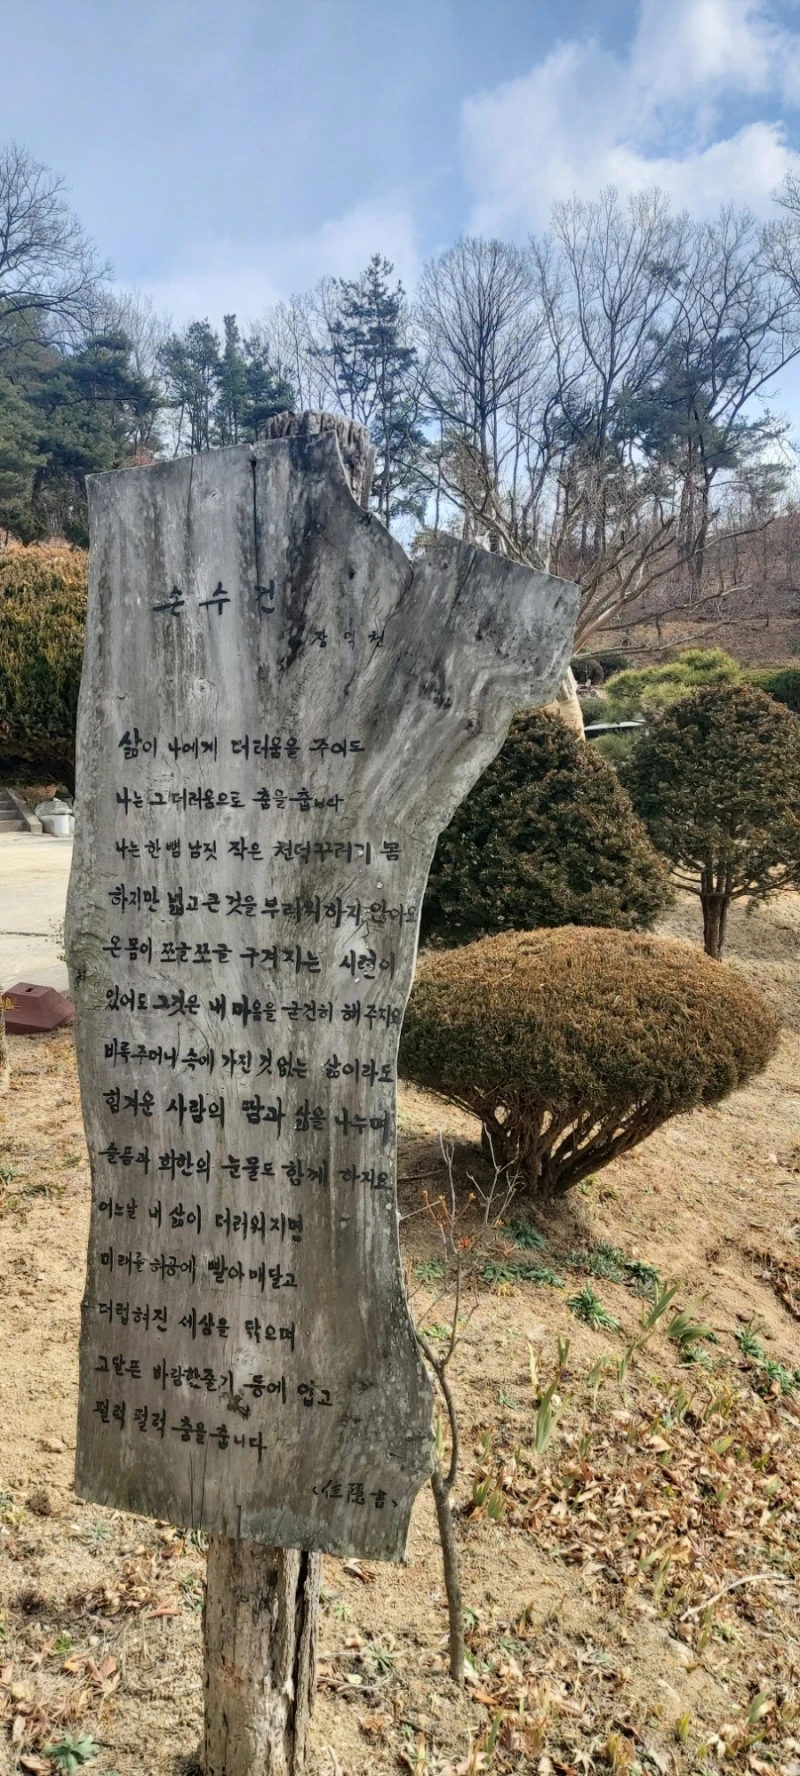 손수건
장덕천
삶이 나에게 더러움을 주어도
나는 그 더러움으로 춤을 춥니다
나는 한 뼘 남짓 작은 천덕꾸러기 몸
하지만 넓고 큰 것을 부러워하지 않아요
온몸이 쪼글쪼글 구겨지는 시련이
있어도 그것은 내 마음을 굳건히 해주지요
벼룩주머니 속에 가진 것 없는 삶이라도
힘겨운 사람의 땀과 삶을 나누며
슬픔과 회한의 눈물도 함께 하지요
어느날 내 삶이 더러워지면
미래를 허공에 빨아 매달고
더럽혀진 세상을 닦으며
고달픈 바람한줄기 등에 업고
펄럭 펄럭 춤을 춥니다
<住隱書>